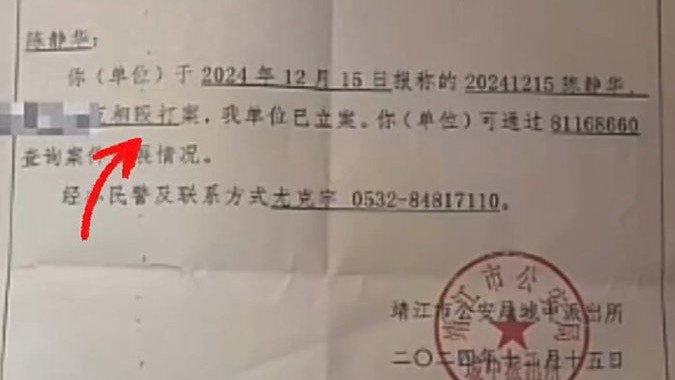 陈静华:
你（单位）于 2024 年 12 月 15 日报称的 20241215 陈静华、
互相殴打案，我单位已立案。你（单位）可通过 81168660
查询案件 展情况。
经办民警及联系方式尤克宇 0532-84817110。
靖江市公安局城中派出所
二〇二四年十二月十五日
靖江市公安局
城中派出所